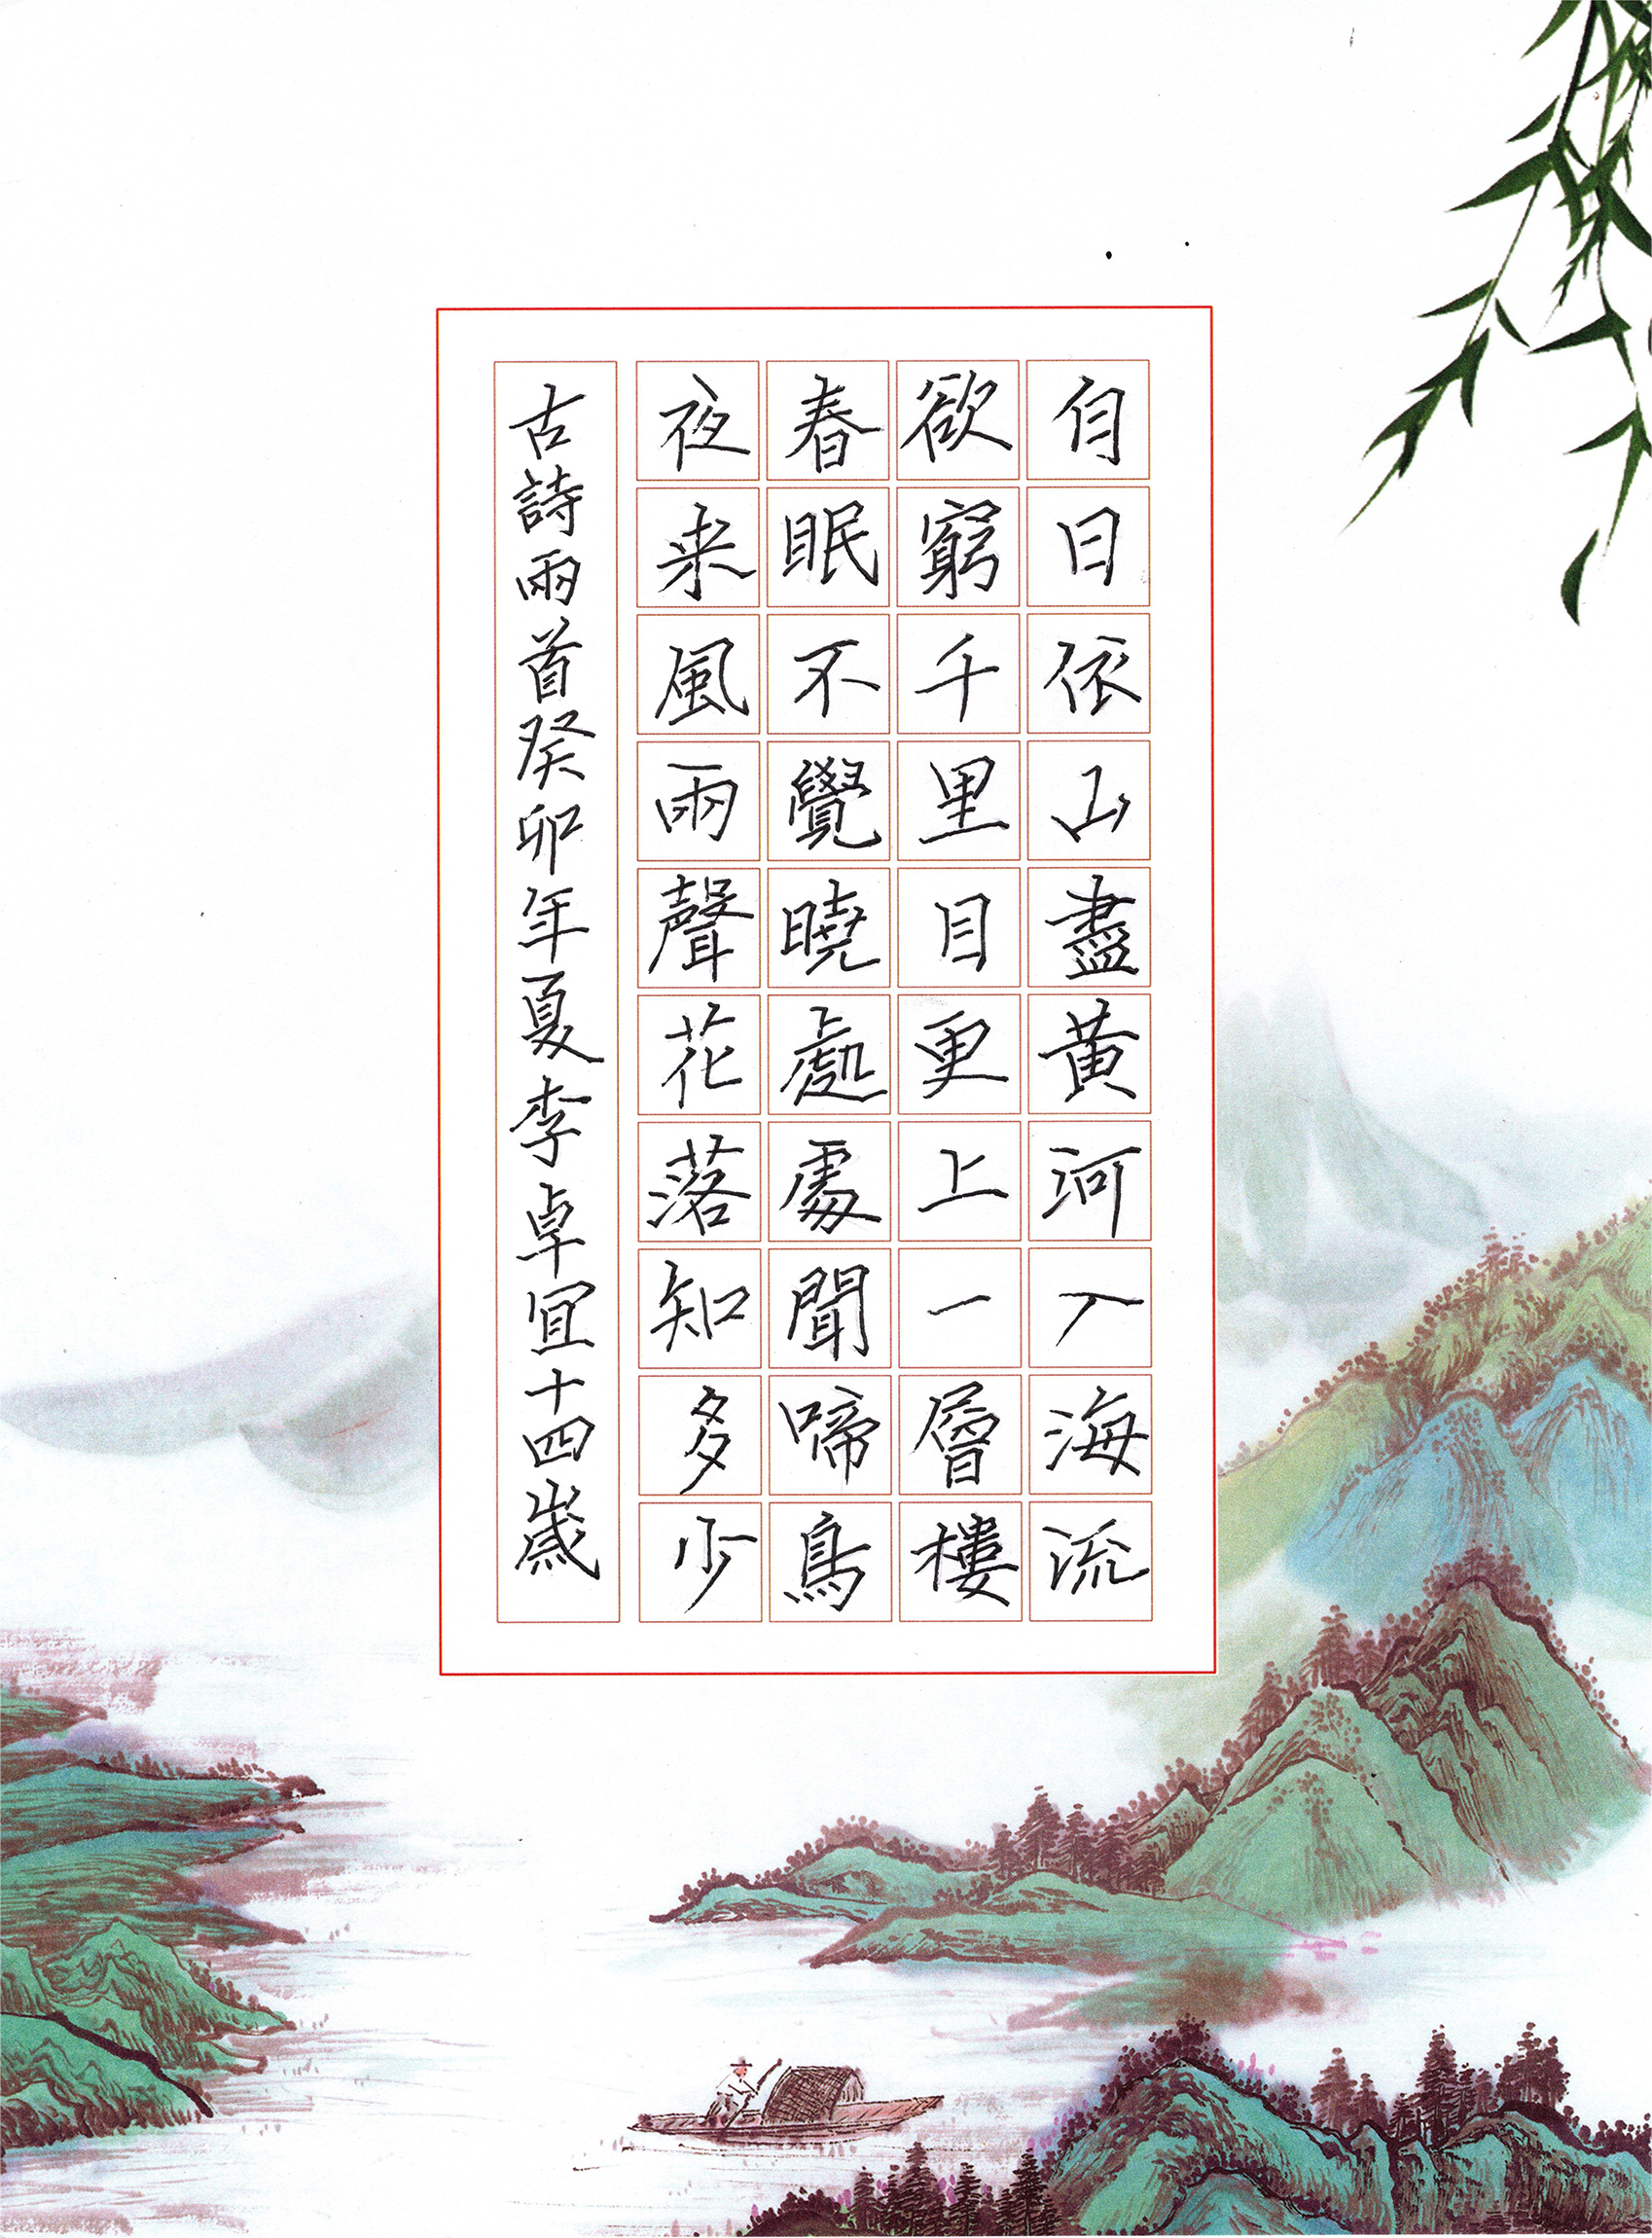 白日依山盡黄河入海流
欲窮千里目更上一層樓
春眠不覺曉處處聞啼鳥
夜来風雨聲花落知多少
古詩兩首癸卯年夏李卓宜十四歲